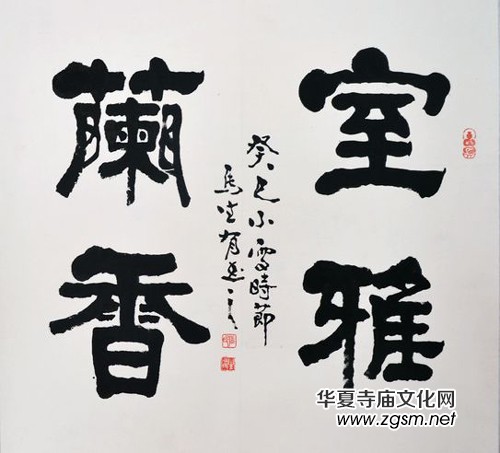 室雅
蘭香
癸巳小雪時節
华夏寺庙文化网
www.zgsm.net